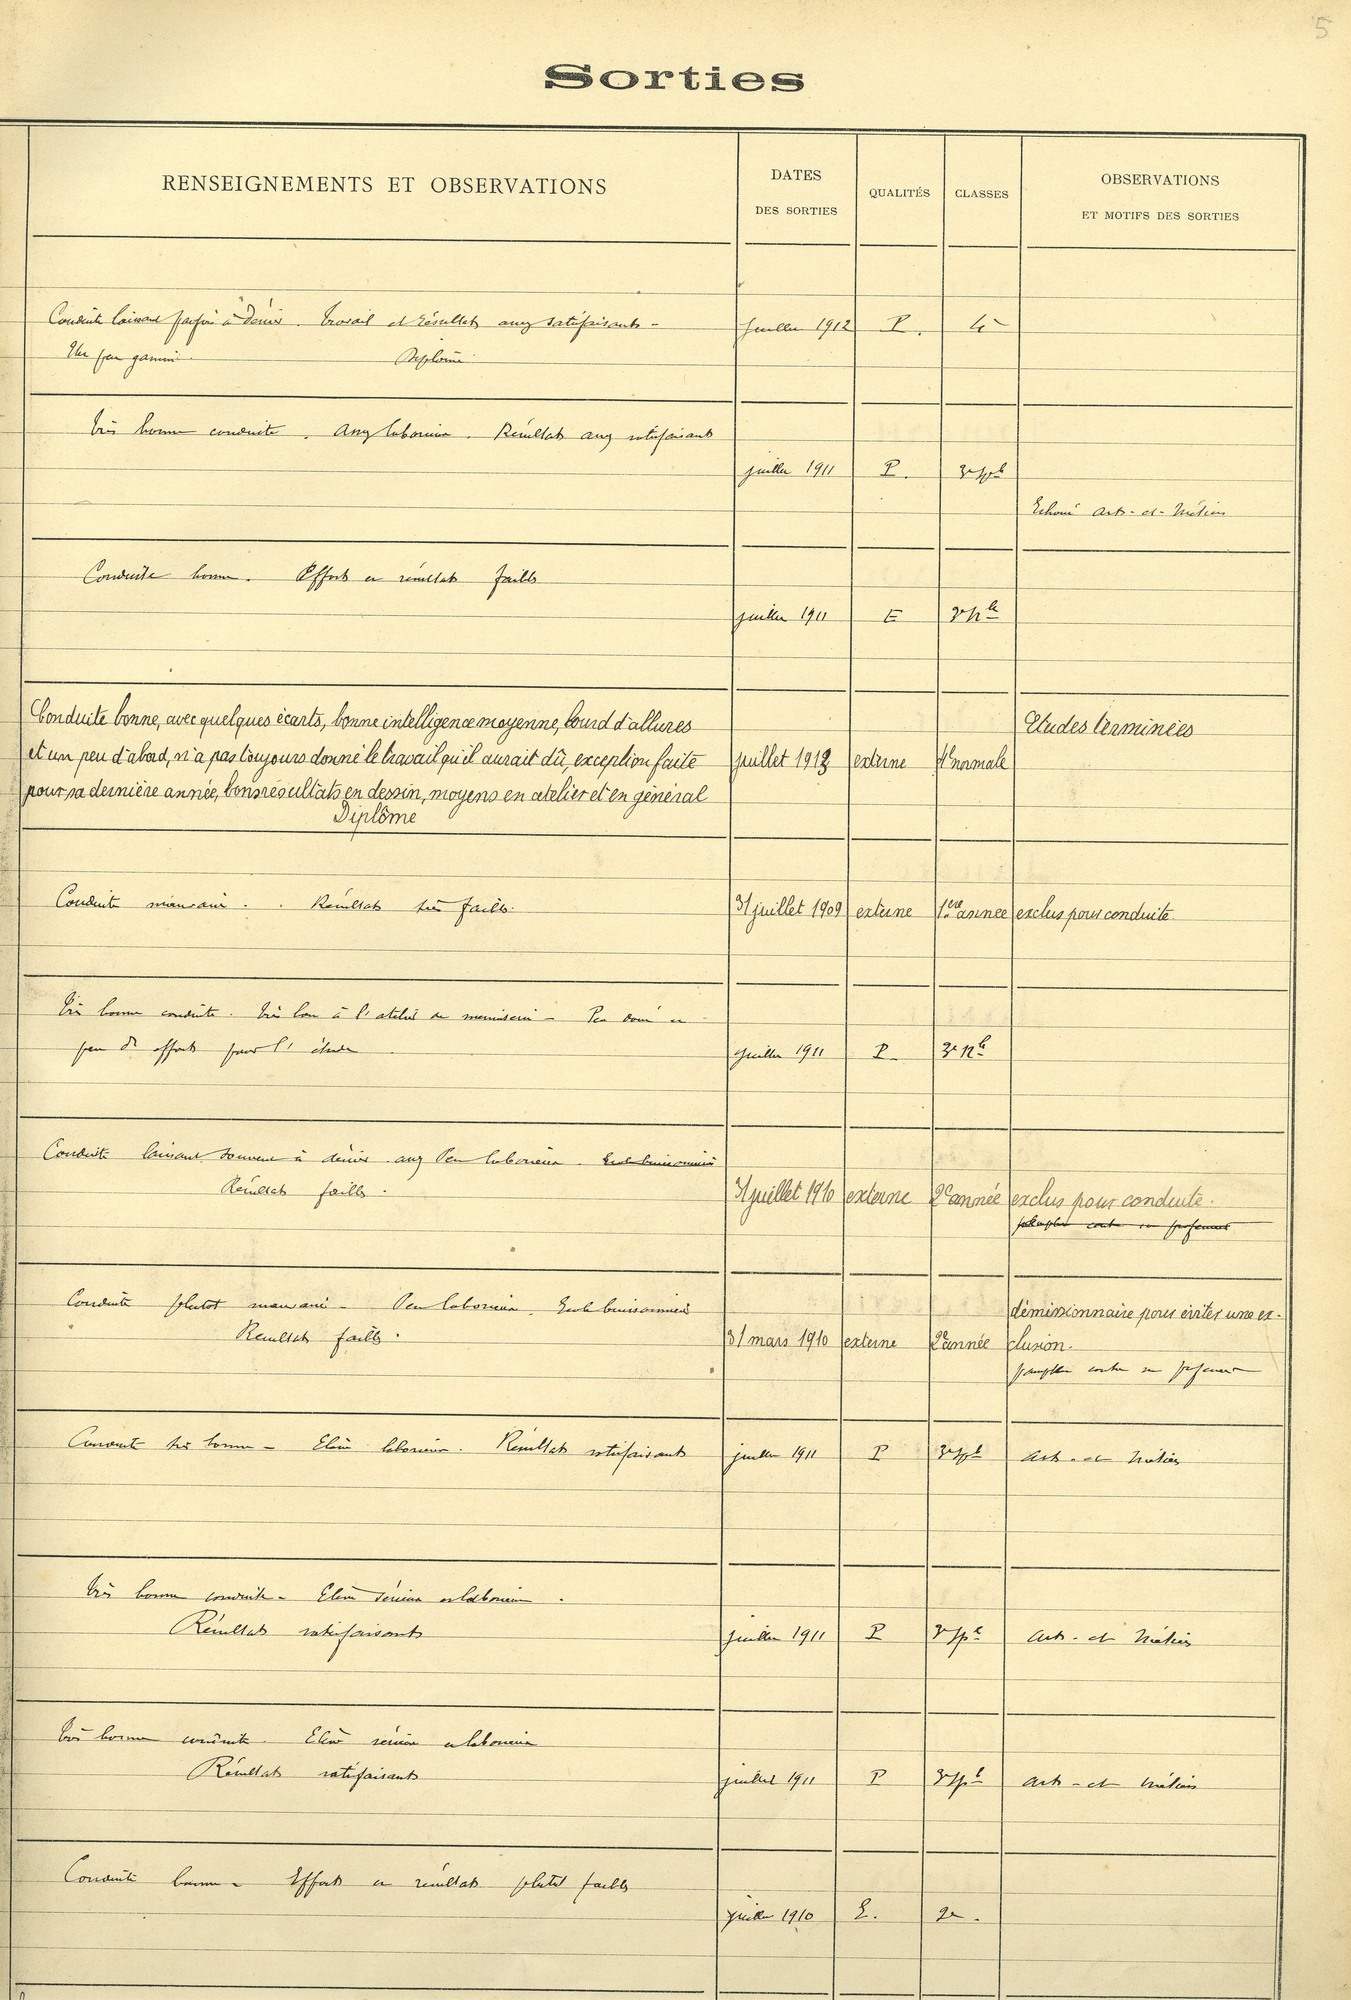 5
Sorties
RENSEIGNEMENTS ET OBSERVATIONS
DATES
DES SORTIES
QUALITÉS
CLASSES
OBSERVATIONS
ET MOTIFS DES SORTIES
Conduite laissant parfois à désirer. Travail et résultats assez satisfaisants -
Un peu gamin. Diplôme
juillet 1912 P. 4e
Très bonne conduite. Assez laborieux. Résultats assez satisfaisants
juillet 1911 P. 3e sple
Echoué Arts-et-Métiers
Conduite bonne. Efforts et résultats faibles
juillet 1911 E 3e nle
Conduite bonne, avec quelques écarts, bonne intelligence moyenne, lourd d'allures
et un peu d'abord, n'a pas toujours donné le travail qu'il aurait dû, exception faite
pour sa dernière année, bons résultats en dessin, moyens en atelier et en général
Diplôme
juillet 1913 externe 4e normale
Etudes terminées
Conduite mauvaise. Résultats très faibles.
31 juillet 1909 externe 1ère année exclus pour conduite
Très bonne conduite. Très bon à l'atelier de menuiserie - Peu doué et
peu d'efforts pour l'étude
juillet 1911 P. 3e nle
Conduite laissant souvent à désirer assez Peu laborieux. Ecole buissonnière
Résultats faibles.
31 juillet 1910 externe 2e année exclus pour conduite.
pamphlet contre un professeur
Conduite plutôt mauvaise - Peu laborieux. Ecole buissonnière
Résultats faibles.
31 mars 1910 externe 2e année
démissionnaire pour éviter une ex-
clusion.
pamphlet contre un professeur
Conduite très bonne - Elève laborieux. Résultats satisfaisants
juillet 1911 P 3e sple Arts-et-Métiers
Très bonne conduite - Elève sérieux et laborieux.
Résultats satisfaisants
juillet 1911 P 3e sple Arts-et-Métiers
Très bonne conduite. Elève sérieux et laborieux
Résultats satisfaisants
juillet 1911 P 3e sple Arts-et-Métiers
Conduite bonne - Efforts et résultats plutôt faibles
juillet 1910 E. 2e.